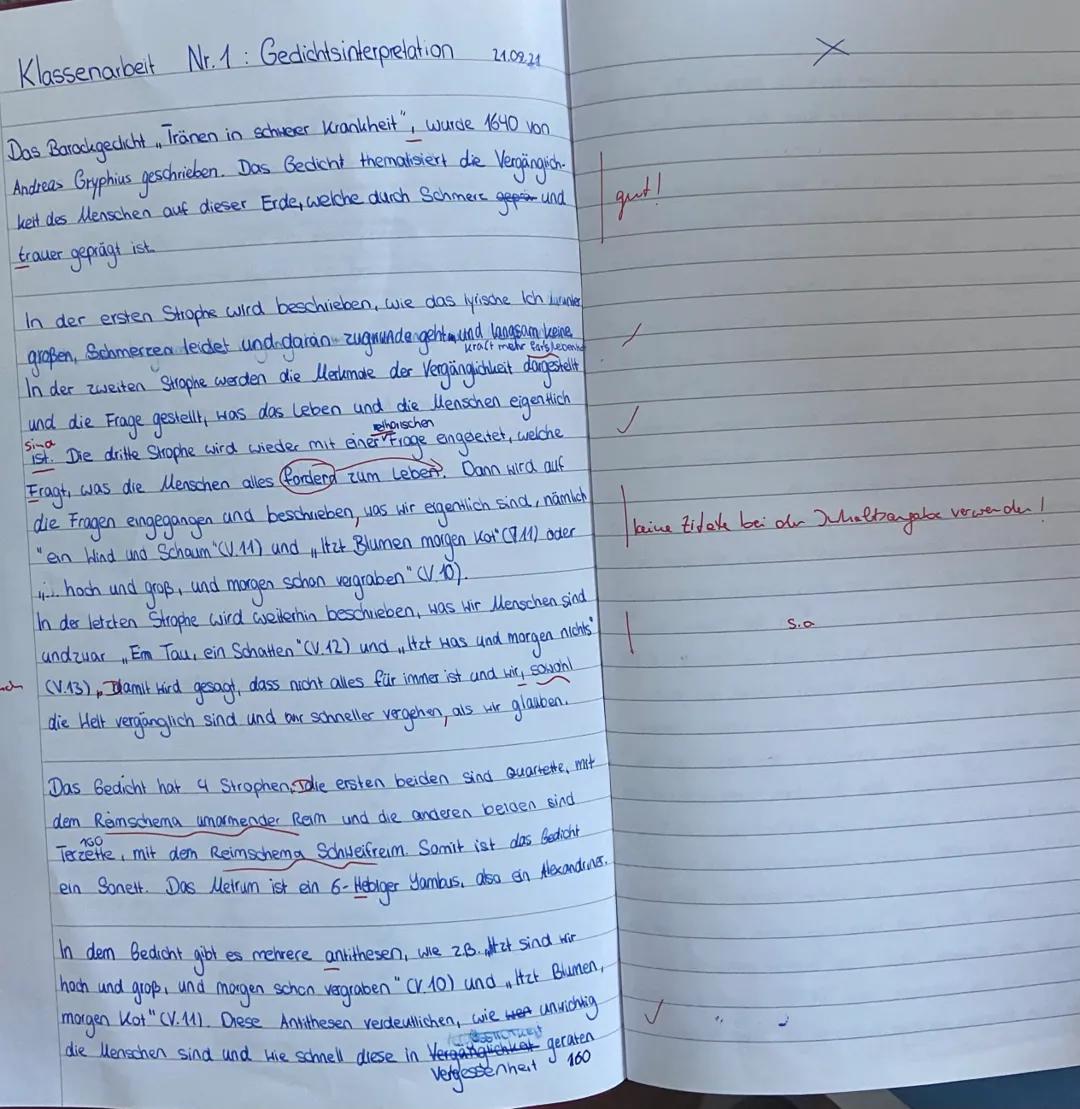 Klassenarbeit Nr. 1 : Gedichtsinterpretation 21.09.21
Das Barockgedicht „Tränen in schwerer Krankheit", wurde 1640 von
Andreas Gryphius geschrieben. Das Gedicht thematisiert die Vergänglich-
keit des Menschen auf dieser Erde, welche durch Schmerz und
gut!
trauer geprägt ist.
In der ersten Strophe wird beschrieben, wie das lyrische Ich
großen, Schmerzen leidet und daran zugrunde geht und langsam keine
kraft mehr fürs Leben
In der zweiten Strophe werden die Merkmale der Vergänglichkeit dargestellt
und die Frage gestellt, was das Leben und die Menschen eigentlich
sind
ist. Die dritte Strophe wird wieder mit einer rethorischen Frage eingeleitet, welche
Fragt, was die Menschen alles fordern zum Leben. Dann wird auf
die Fragen eingegangen und beschrieben, was wir eigentlich sind, nämlich
keine Zitate bei der Inhaltsangabe verwenden!
"ein Wind und Schaum" (V.11) und „Itzt Blumen morgen Kot" (V.11) oder
„... hoch und groß, und morgen schon vergraben" (V.10).
In der letzten Strophe wird weiterhin beschrieben, was wir Menschen sind
s.o
undzwar „Ein Tau, ein Schatten" (V.12) und „Itzt was und morgen nichts"
(V.13), Damit wird gesagt, dass nicht alles für immer ist und wir, sowohl
die Welt vergänglich sind und schneller vergehen, als wir glauben.
Das Gedicht hat 4 Strophen, die ersten beiden sind Quartette, mit
dem Reimschema umarmender Reim und die anderen beiden sind
160
Terzette, mit dem Reimschema Schweifreim. Somit ist das Gedicht
ein Sonett. Das Metrum ist ein 6-Hebiger Yambus, also ein Alexandriner.
In dem Gedicht gibt es mehrere antithesen, wie z.B. „Itzt sind wir
hoch und groß, und morgen schon vergraben" (V.10) und „Itzt Blumen,
morgen Kot" (V.11). Diese Antithesen verdeutlichen, wie unwichtig
die Menschen sind und wie schnell diese in Vergänglichkeit geraten
Vergessenheit 160